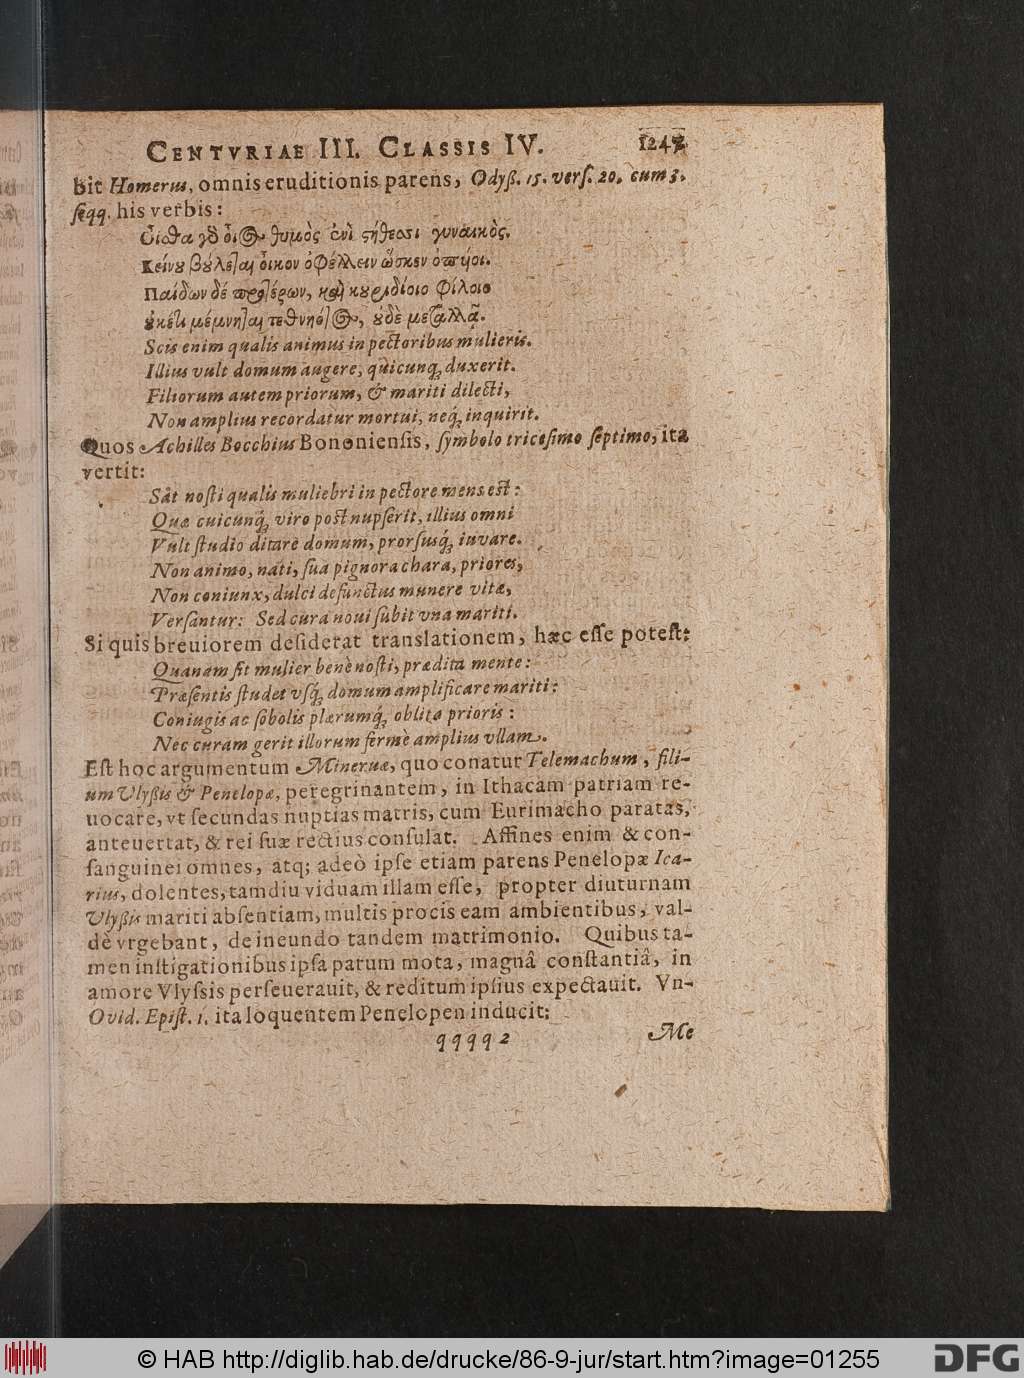 CENTVRIAE III. CLASSIS IV. 1247
bit Homerus, omnis eruditionis parens, Odyß. 15. vers. 20. cum 3.
seqq. his verbis:
Οἶσθα γὸ οἷος θυμὸς ἐνὶ ϛήθεσσι γυναικὸς.
Κείνου βούλεται οἶκον ὀφέλλειν ὥσκεν ὀπυίοι.
Παίδων δέ προτέρων, καὶ κουριδίοιο φίλοιο
οὐκέτι μέμνηται τεθνηότος, οὐδὲ μεταλλᾷ.
Scis enim qualis animus in pectoribus mulieris.
Illius vult domum augere, quicunq; duxerit.
Filiorum autem priorum, & mariti dilecti,
Non amplius recordatur mortui, neq; inquirit.
Quos Achilles Bocchius Bononiensis, symbolo tricesimo septimo, ita
vertit:
Sât nosti qualis muliebri in pectore mens est:
Quæ cuicunq; viro post nupserit, illius omni
Vult studio ditare domum, prorsusq; iuvare.
Non animo, nati, sua pignora chara, priores,
Non coniunx, dulci defunctus munere vitæ,
Versantur: Sed cura noui subit vna mariti.
Si quis breuiorem desiderat translationem, hæc esse potest:
Quanam sit mulier benè nosti, prædita mente:
Præsentis studet vsq; domum amplificare mariti:
Coniugis ac sobolis plærumq; oblita prioris:
Nec curam gerit illorum fermè amplius vllam.
Est hoc argumentum Mineruæ, quo conatur Telemachum, fili-
um Vlyßis & Penelopæ, peregrinantem, in Ithacam patriam re-
uocare, vt secundas nuptias matris, cum Eurimacho paratas,
anteuertat, & rei suæ rectius consulat. Affines enim & con-
sanguinei omnes, atq; adeò ipse etiam parens Penelopæ Ica-
rius, dolentes, tamdiu viduam illam esse, propter diuturnam
Vlyßis mariti absentiam, multis procis eam ambientibus, val-
dè vrgebant, de ineundo tandem matrimonio. Quibus ta-
men instigationibus ipsa parum mota, magnâ constantiâ, in
amore Vlyssis perseuerauit, & reditum ipsius expectauit. Vn-
Ovid. Epist. 1. ita loquentem Penelopen inducit:
qqqq 2 Me
© HAB http://diglib.hab.de/drucke/86-9-jur/start.htm?image=01255 DFG